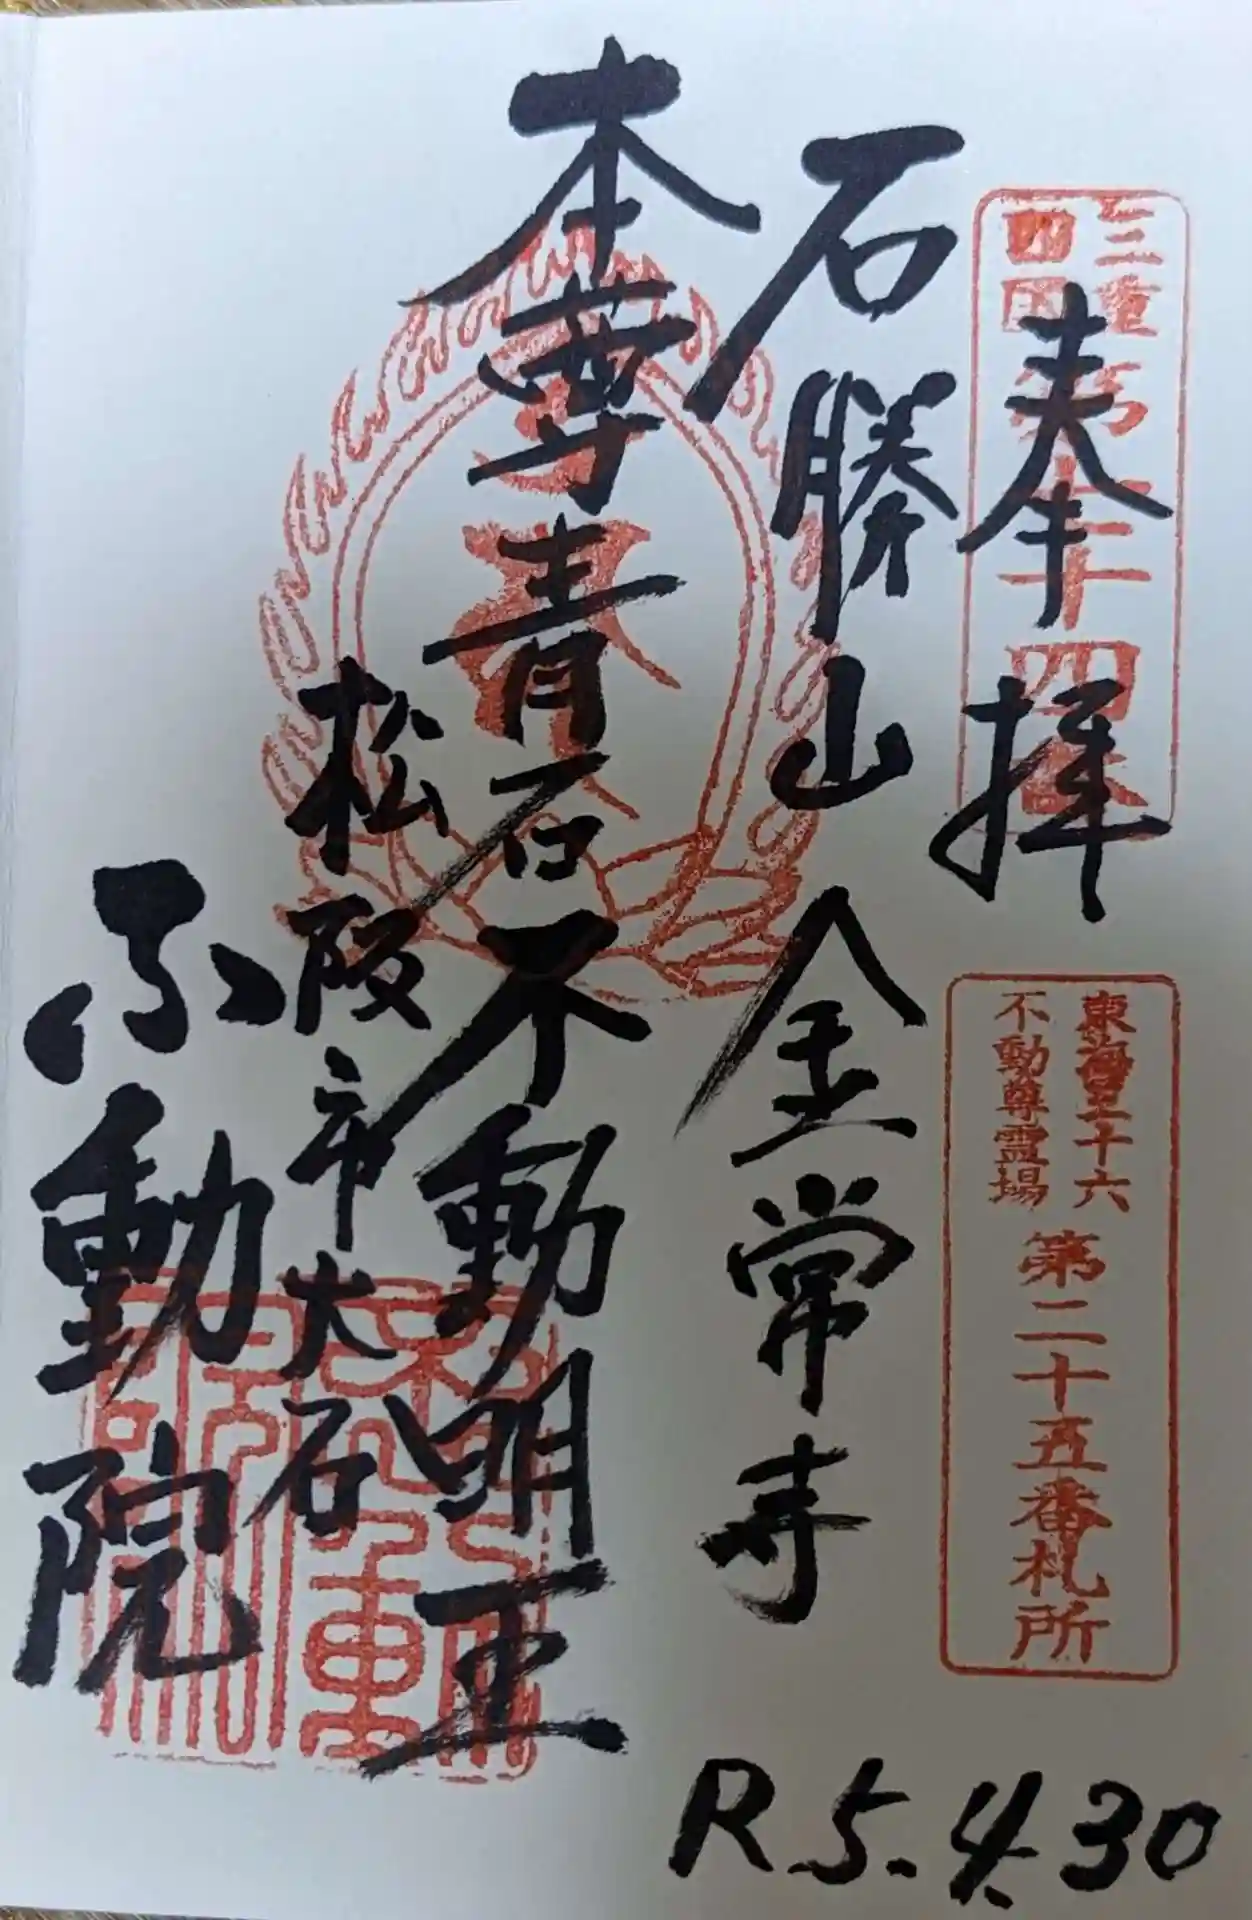 三重
四国
第十四番
奉拝
東海三十六
不動尊霊場
第二十五番札所
石勝山 金常寺
本尊青石不動明王
松阪市大石
不動院
R.5.4.30